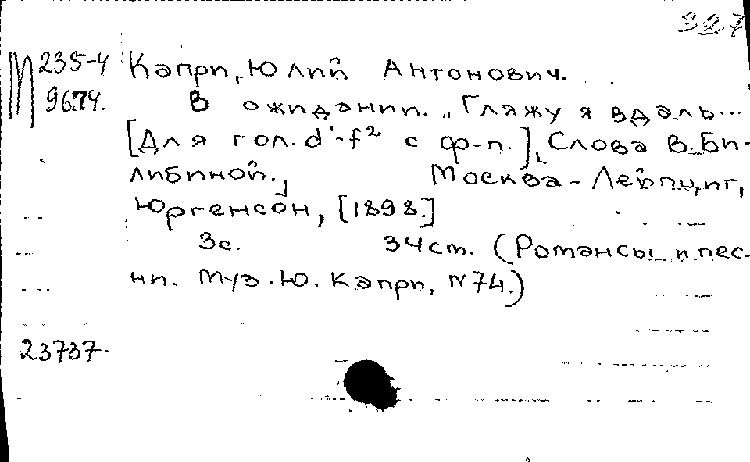 327
М 235-4 Кэпри, Юлий Антонович.
9674. В ожидании. „Гляжу я вдаль...
[Для гол. d'-f² с ф-п.], Слова В. Би-
либиной., Москва - Лейпциг,
Юргенсон, [1898.]
3с. 34 ст. (Романсы и пес-
ни. Муз. Ю. Кэпри, N 74.)
23737.